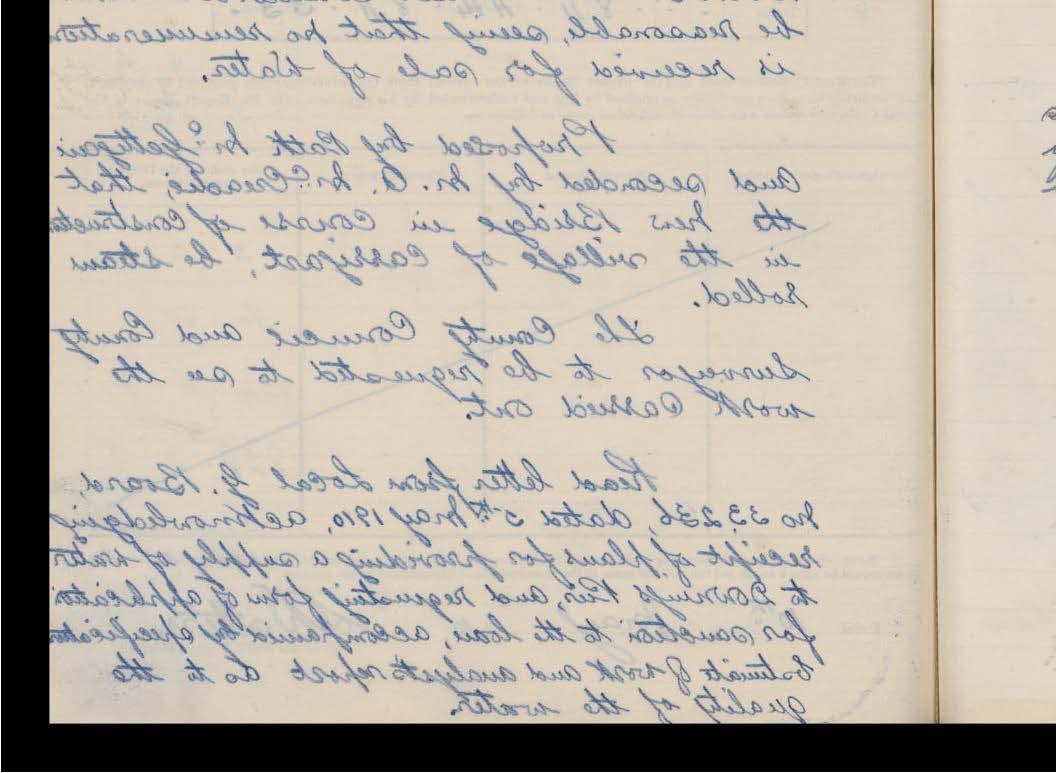 be reasonable, seeing that no remuneration
is received for sale of Water.
Proposed by Patk McGettigan
and seconded by M. A. McCreadie, that
the new Bridge in course of construction
in the village of Carrigart, be steam
rolled.
The County Council and County
Surveyor to be requested to see the
work Carried out.
Read letter from Local G. Board,
No 33,236, dated 5th May 1910, acknowledging
receipt of plans for providing a supply of water
to Downings Pier, and requesting form of application
for sanction to the loan, accompanied by specification
Estimate of work and analysts report as to the
quality of the water.